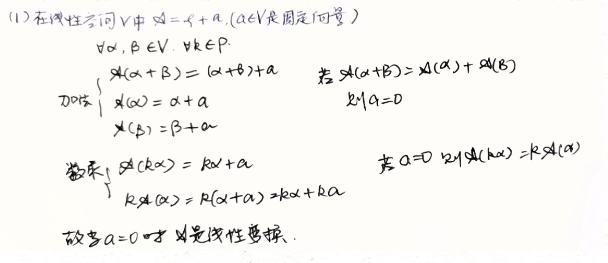 (1) 在线性空间V中 𝒜=ξ+a.(a∈V是固定向量)
∀α,β∈V. ∀k∈P.
加法 { 𝒜(α+β)=(α+β)+a
𝒜(α)=α+a
𝒜(β)=β+a
若 𝒜(α+β)=𝒜(α)+𝒜(β)
则a=0
数乘 { 𝒜(kα)=kα+a
k𝒜(α)=k(α+a)=kα+ka
若a=0 则𝒜(kα)=k𝒜(α)
故当a=0时 𝒜是线性变换.